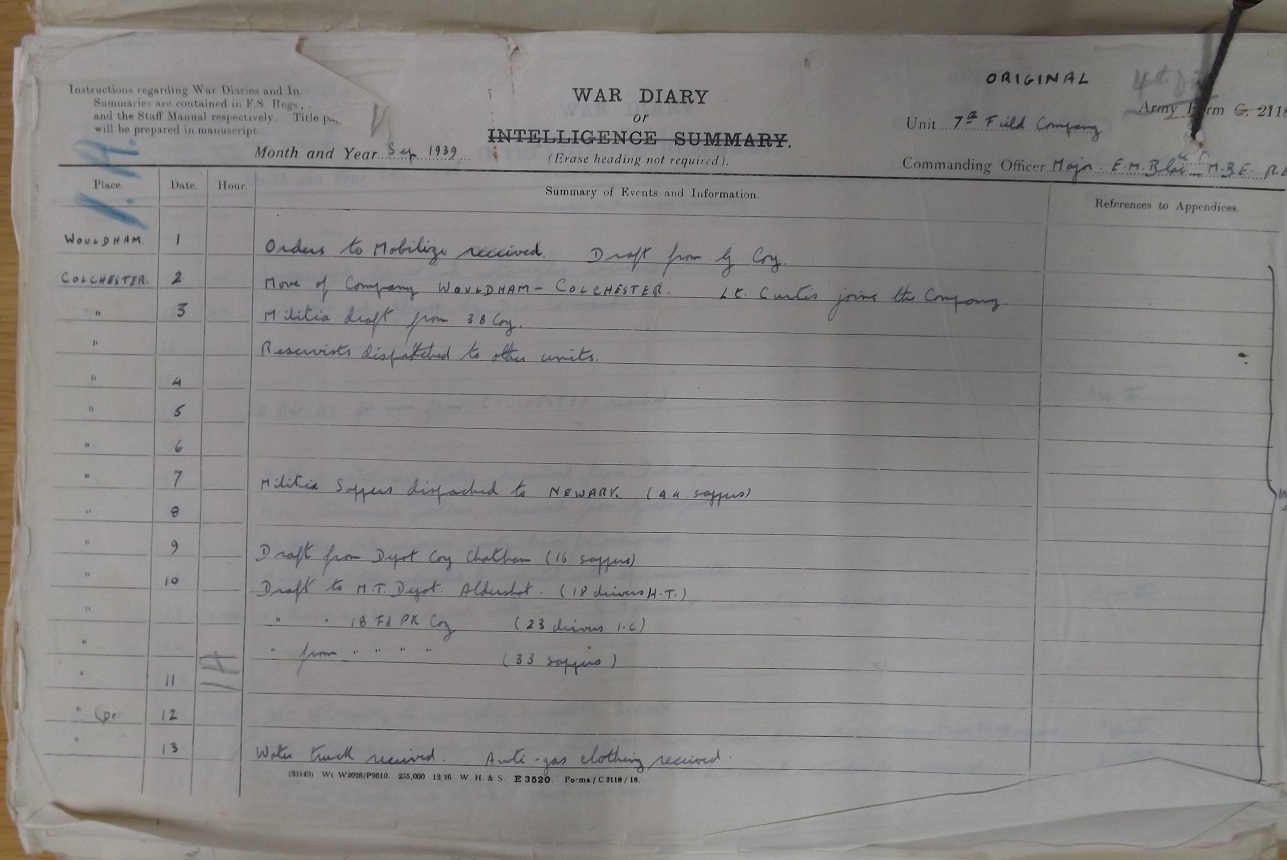 ORIGINAL
Instructions regarding War Diaries and In
Summaries are contained in F.S. Regs.,
and the Staff Manual respectively. Title
will be prepared in manuscript.
WAR DIARY
or
INTELLIGENCE SUMMARY.
(Erase heading not required).
Month and Year Sep. 1939
Army Form C. 2118
Unit 7th Field Company
Commanding Officer Major E.M. M.B.E. R.E
Place. Date. Hour. Summary of Events and Information References to Appendices.
WOULDHAM. 1 Orders to Mobilize received. Draft from Coy.
COLCHESTER. 2 Move of Company WOULDHAM - COLCHESTER. Lt. Curtis joins the Company.
" 3 Militia draft from 38 Coy.
" Reservists dispatched to other units.
" 4
" 5
" 6
" 7 Militia Sappers dispached to NEWARK. (44 sappers)
" 8
" 9 Draft from Depot Coy Chatham (16 sappers)
" 10 Draft to M.T. Depot. Aldershot. (18 drivers H.T.)
" " " 18 Fd PK Coy (23 drivers I.C)
" " from " " " " (33 sappers)
" 11
" 12
" 13 Water truck received. Anti-gas clothing received.
(33149) Wt W3026/P9610. 255,000 12/36 W. H. & S. E 3520 Forms/C2118/18.